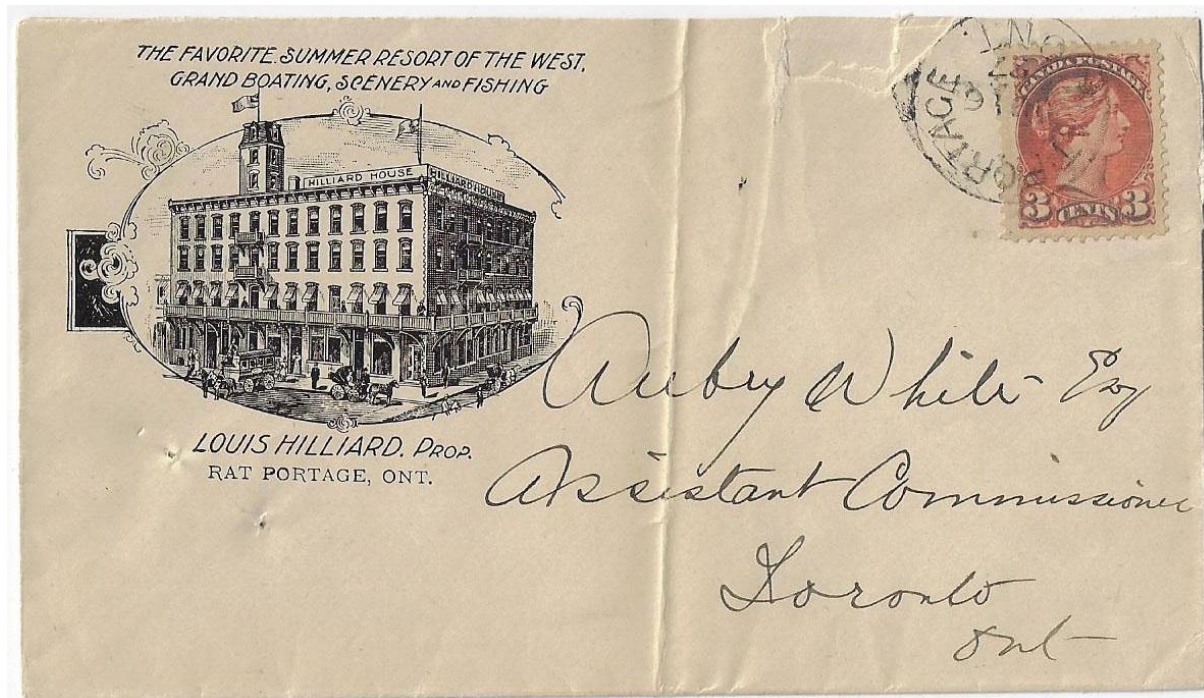 THE FAVORITE SUMMER RESORT OF THE WEST,
GRAND BOATING, SCENERY AND FISHING
HILLIARD HOUSE HILLIARD HOUSE
LOUIS HILLIARD, PROP.
RAT PORTAGE, ONT.
PORTAGE ONT
CANADA POSTAGE
3 CENTS 3
Aubry White Esq
Assistant Commissioner
Toronto
Ont